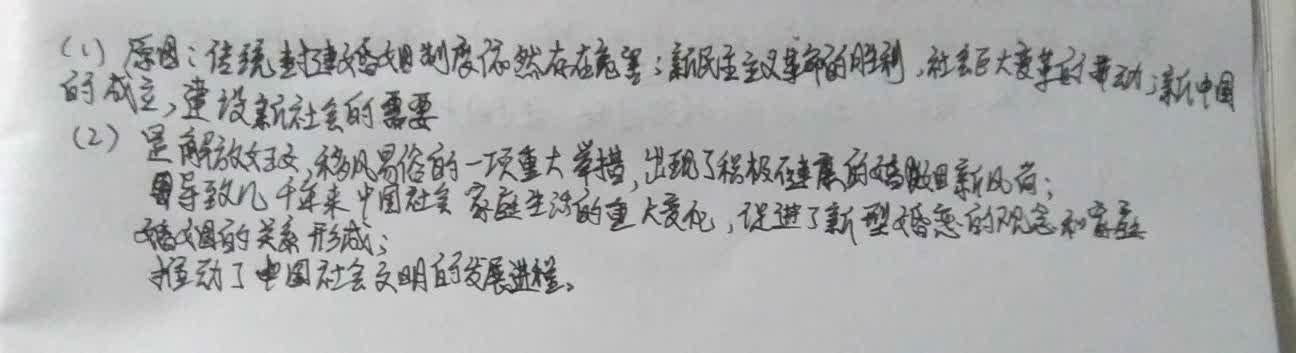 (1) 原因：传统封建婚姻制度依然存在危害；新民主主义革命的胜利，社会巨大变革的带动；新中国
的成立，建设新社会的需要
(2) 是解放妇女，移风易俗的一项重大举措，出现了积极健康的婚姻新风尚；
导致几千年来中国社会家庭生活的重大变化，促进了新型婚恋的观念和家庭
婚姻的关系形成；
推动了中国社会文明的发展进程。